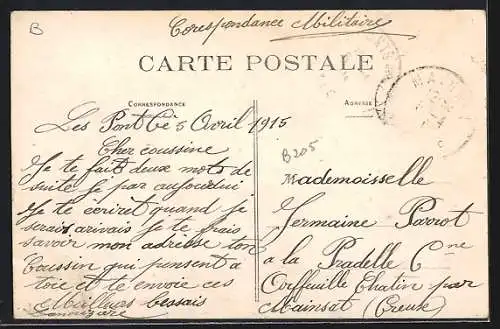 B
Corespondance Militaire
CARTE POSTALE
CORRESPONDANCE
ADRESSE
Les Pont Cé 5 Avril 1915
B205
Cher coussine
Je te fait deux mots de
suite je par aujourdui
Je te écriret quand je
serais arivais je te frais
savoir mon adresse ton
Coussin qui pensent a
toie et te envoie ces
Meilleurs bessais
Mademoisselle
Germaine Parrot
a la Pradelle Cne
Orffeuille Chatin par
Mainsat (Creuse)